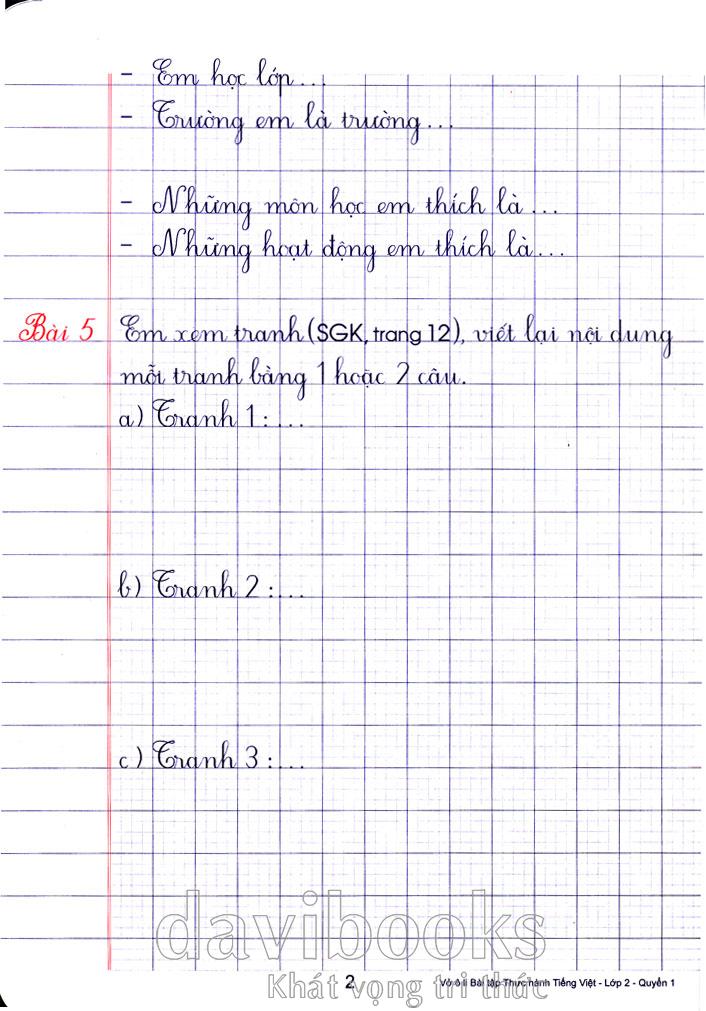 - Em học lớp...
- Trường em là trường...
- Những môn học em thích là...
- Những hoạt động em thích là...
Bài 5 Em xem tranh (SGK, trang 12), viết lại nội dung
mỗi tranh bằng 1 hoặc 2 câu.
a) Tranh 1:...
b) Tranh 2:...
c) Tranh 3:...
davibooks
Khát vọng tri thức
2 Vở ô li Bài tập Thực hành Tiếng Việt - Lớp 2 - Quyển 1